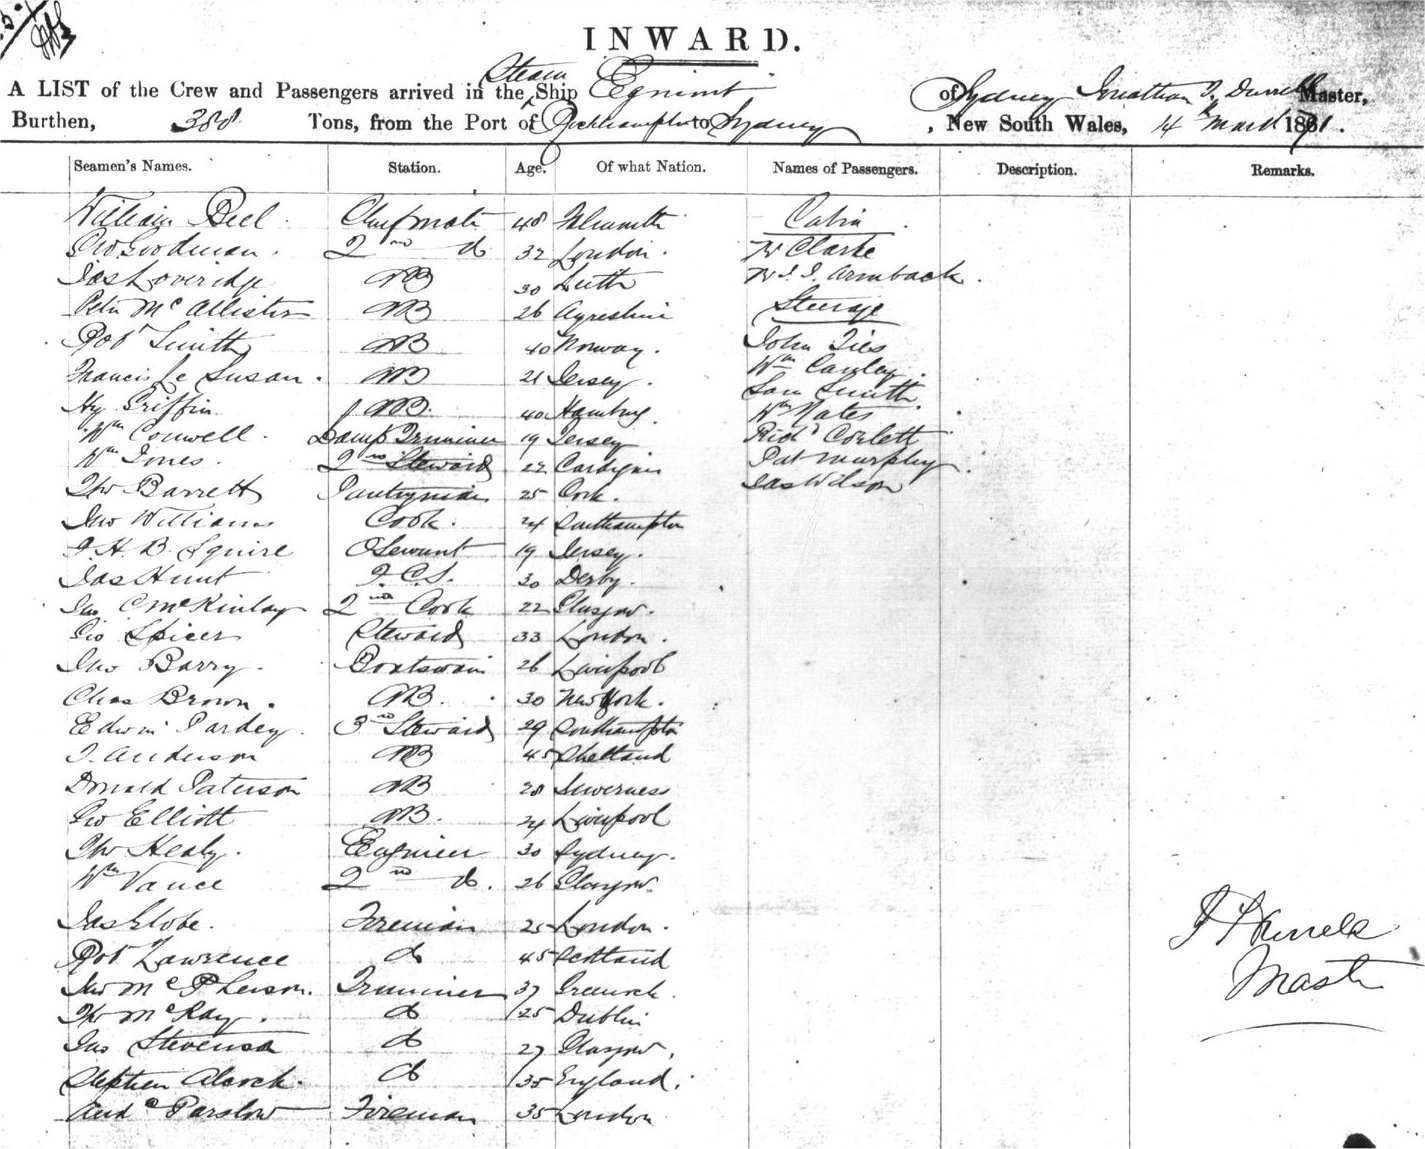 INWARD.
A LIST of the Crew and Passengers arrived in the Steam Ship Egmont of Sydney Jonathan T. Durrell Master,
Burthen, 388 Tons, from the Port of Rockhampton to Sydney, New South Wales, 14 March 1871.
Seamen's Names. Station. Age. Of what Nation. Names of Passengers. Description. Remarks.
William Bell Chief mate 48 Falmouth Cabin
Geo Goodman 2nd do 32 London. Mr Clarke
Jas Loveridge AB 30 Leith Mr J. J. Armback
Peter McAllister AB 26 Ayrshire Steerage
Robt Smith AB 40 Norway. John Iles
Francis Le Susan. AB 21 Jersey. Wm Cauley
Hy Griffin AB. 40 Hamburg. Sam Smith
Wm Conwell. Lamp Trimmer 19 Jersey Wm Nates
Wm Jones. 2nd Steward 22 Cardigan Richd Corlett
Tho Barrett Pantryman 25 Cork. Pat Murphy
Jno Williams Cook. 24 Southampton Jas Wilson
J. H. B. Squire OServant 19 Jersey.
Jas Hunt F.C.S. 30 Derby.
Jno C McKinlay 2nd Cook 22 Glasgow.
Geo Spicer Steward 33 London.
Jno Barry. Boatswain 26 Liverpool
Chas Brown. AB. 30 New York.
Edwin Pardey. 3rd Steward 29 Southampton
J. Anderson AB 45 Shetland
Donald Paterson AB 28 Inverness
Geo Elliott AB. 24 Liverpool
Tho Healy. Engineer 30 Sydney.
Wm Vance 2nd do. 26 Glasgow.
Jas Globe. Fireman 25 London.
Robt Lawrence do 45 Scotland
Jno McPherson. Trimmer 37 Greenock.
Tho McKay. do 25 Dublin
Jno Stevenson do 27 Glasgow.
Stephen Alcock. do 35 England.
And Parslow Fireman 35 London
J T Durrell
Master